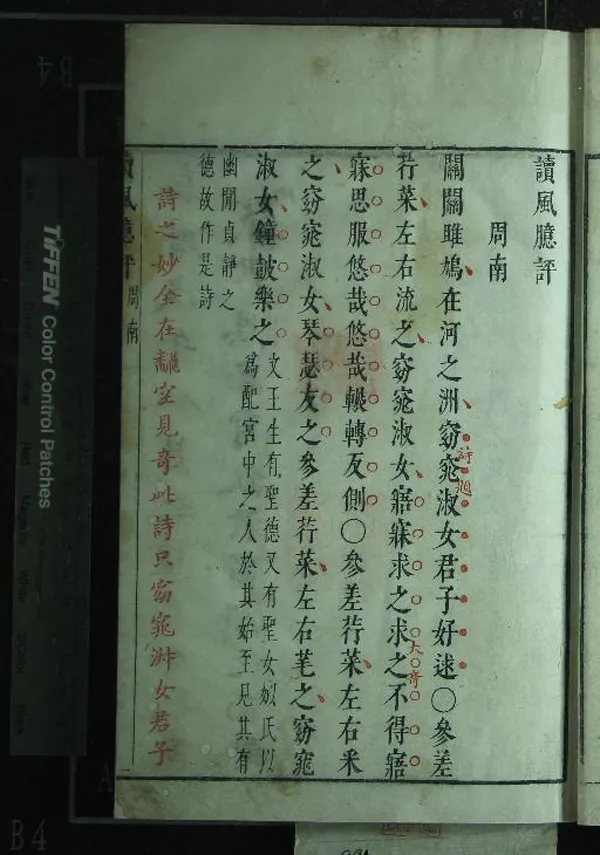 讀風臆評
周南
關關雎鳩在河之洲窈窕淑女君子好逑○參差
荇菜左右流之窈窕淑女寤寐求之求之不得寤
寐思服悠哉悠哉輾轉反側○參差荇菜左右采
之窈窕淑女琴瑟友之參差荇菜左右芼之窈窕
淑女鐘鼓樂之
文王生有聖德又有聖女姒氏以
爲配宮中之人於其始至見其有
幽閒貞靜之
德故作是詩
詩之妙全在翻空見奇此詩只窈窕淑女君子
讀風臆評 周南
詩
大
TIFFEN Color Control Patches
B4
B4
A